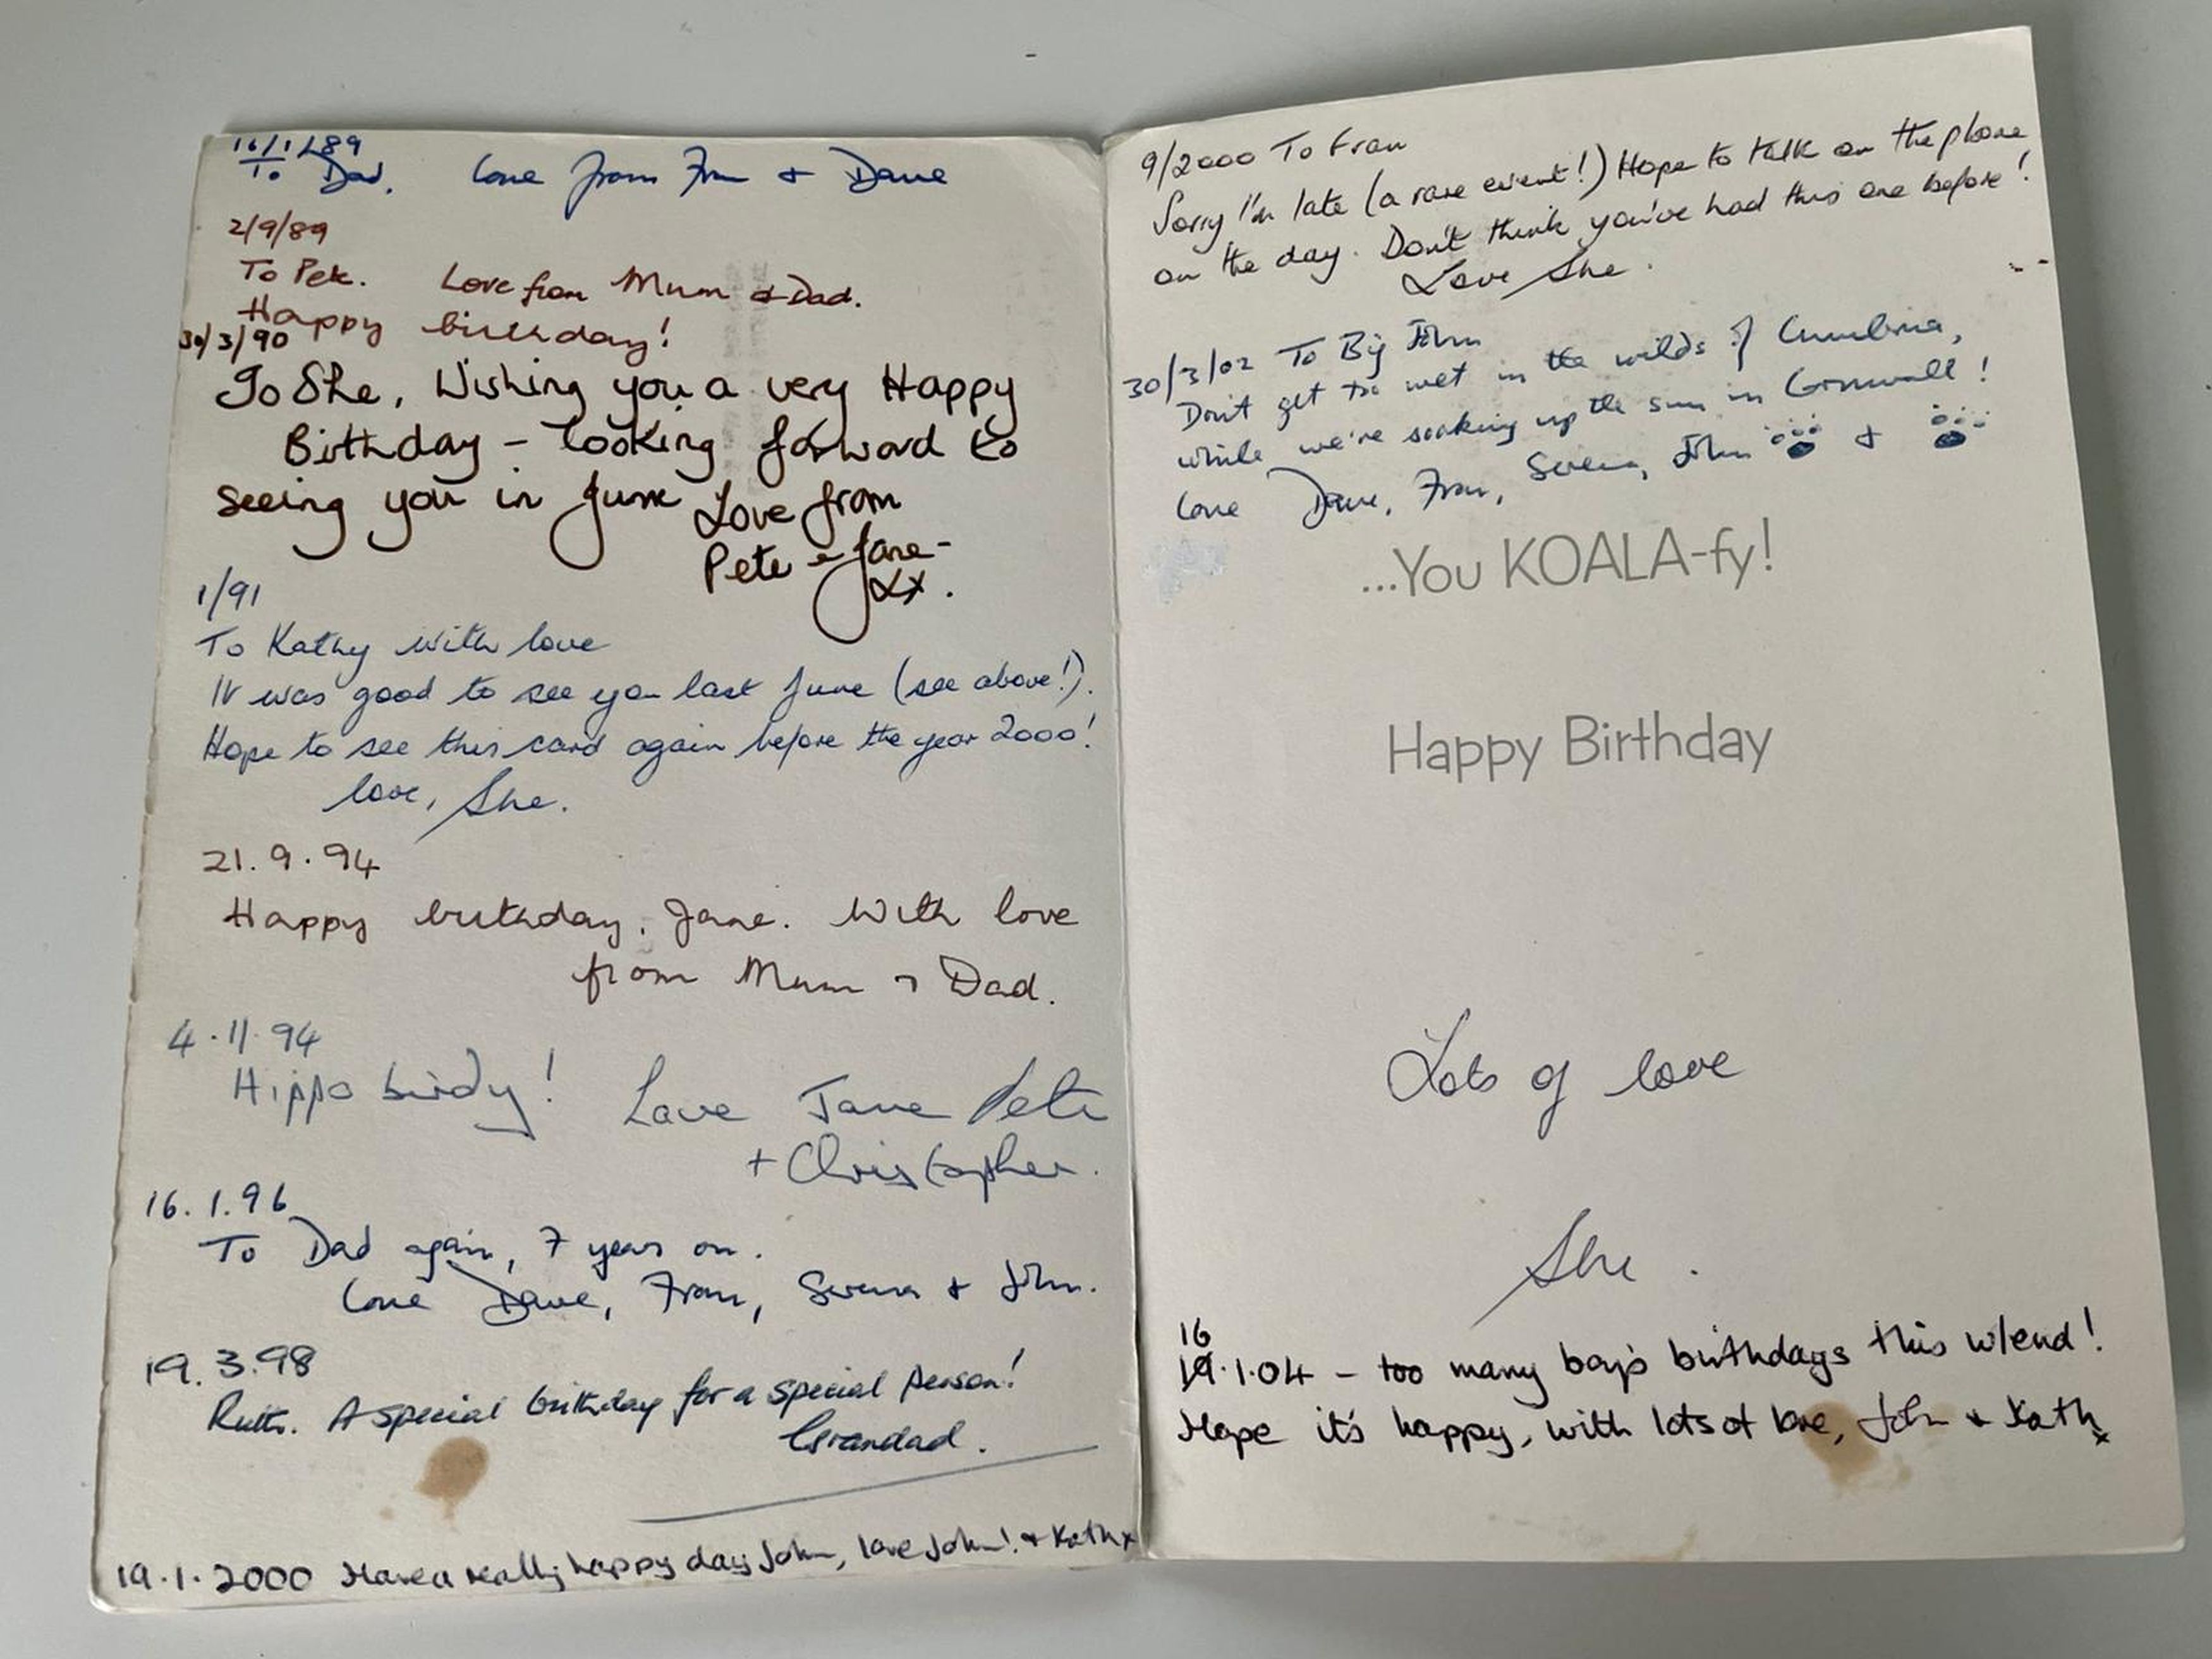 16/1/89
To Dad. Love from Fran & Dave
2/9/89
To Pete. Love from Mum & Dad.
Happy birthday!
30/3/90
To She, Wishing you a very Happy
Birthday - looking forward to
seeing you in June Love from
Pete & Jane-
xx.
1/91
To Kathy with love
It was good to see you last June (see above!).
Hope to see this card again before the year 2000!
love, She.
21.9.94
Happy birthday, Jane. With love
from Mum & Dad.
4.11.94
Hippo birdy! Love Jane Pete
+ Christopher.
16.1.96
To Dad again, 7 years on.
Love Dave, Fran, Serena & John.
19.3.98
Ruth. A special birthday for a special person!
Grandad.
19.1.2000 Have a really happy day John, love John! & Kath x
9/2000 To Fran
Sorry I'm late (a rare event!) Hope to talk on the phone
on the day. Don't think you've had this one before!
Love She.
30/3/02 To Big John
Don't get too wet in the wilds of Cumbria,
while we're soaking up the sun in Cornwall!
Love Dave, Fran, Serena, John & 
...You KOALA-fy!
Happy Birthday
Lots of love
She.
16
19.1.04 - too many boys birthdays this w/end!
Hope it's happy, with lots of love, John & Kath x